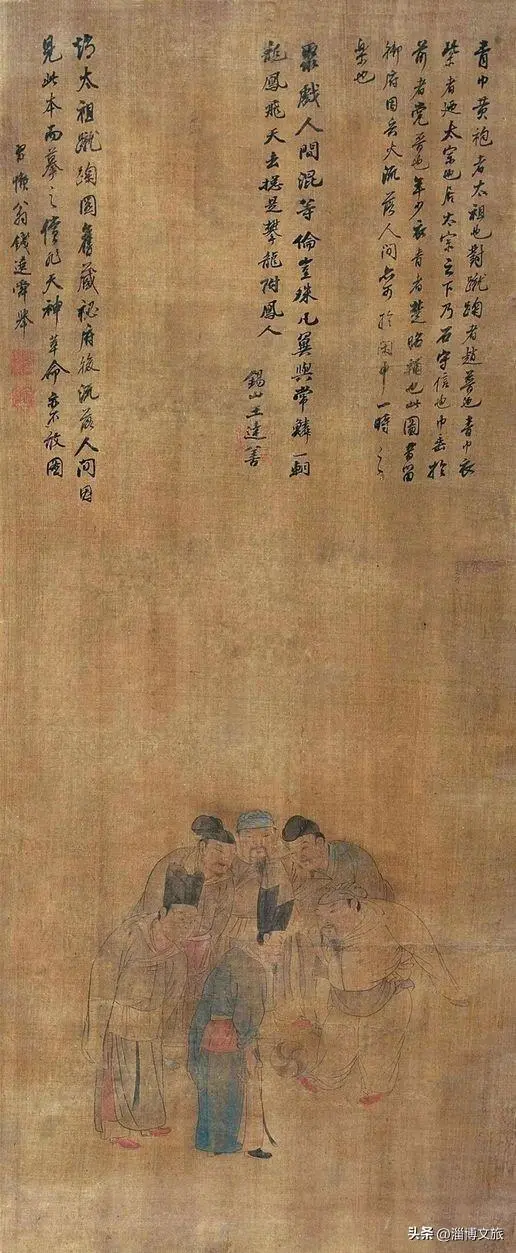 青巾黄袍者太祖也對蹴踘者趙普也青巾衣
紫者迺太宗也居太宗之下乃石守信也巾垂於
前者党晋也年少衣青者楚昭輔也此圖舊留
御府因兵火流落人間於閑中一時之
樂也
聚戲人間混等倫豈殊凡翼與常鱗一朝
龍鳳飛天去總是攀龍附鳳人
錫山王達善
太祖蹴踘圖舊藏秘府後流落人間因
見此本而摹之儻非天神革命亦不敢圖
習懶翁錢選舜舉
头条 @淄博文旅